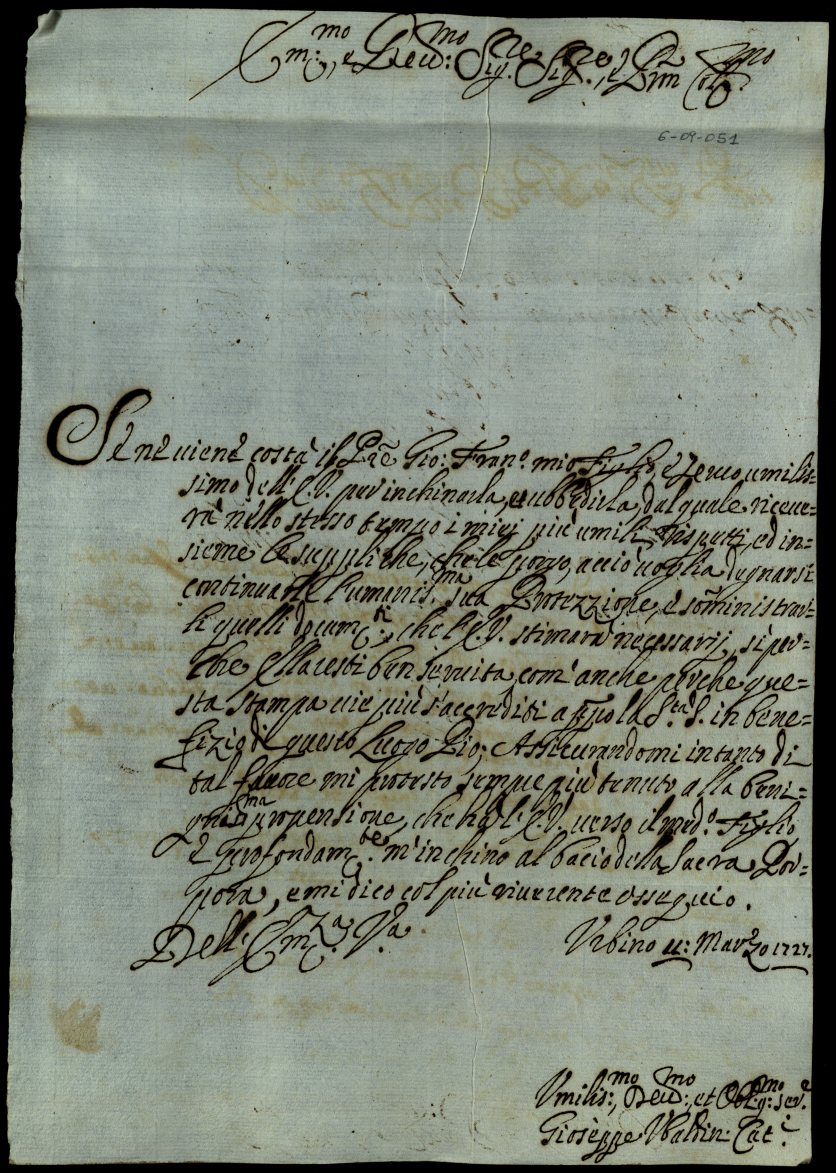 Em:mo, e Reud:mo Sig.re Sig.re, e Prñ Col:mo
6-09-051
Se ne viene costà il Pre Gio: Fran.o mio Figlio, e servo umilis-
simo dell'E.V. per inchinarla, et ubbidirla, dal quale riceve-
rà nello stesso tempo i miej più umili rispetti, ed in-
sieme le suppliche, che le porgo, acciò voglia degnarsi
continuarle l'umanis.ma sua Protezzione, e sõministrar-
li quelli documti, che l'E.V. stimarà necessarij, sì per-
che Ella resti ben servita, com'anche perche que-
sta stampa vie più s'accrediti appo la S.tà S. in bene-
fizio di questo Luogo Pio; Assicurandomi intanto di
tal favore mi protesto sempre più tenuto alla beni-
gnis.ma propensione, che hà l'E.V. verso il med.o Figlio,
e profondam.te m'inchino al bacio della Sacra Por-
pora, e mi dico col più riverente ossequio.
Dell'Em.za V.a
Urbino 11: Marzo 1727.
Umilis:mo, Deu:mo, et Obl:mo ser.e
Gioseppe Ubaldin: Cat.i